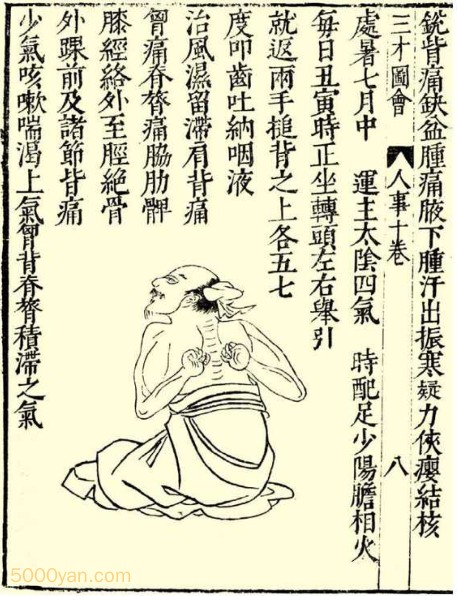 銳皆痛缺盆腫痛腋下腫汗出振寒疑力俠癭結核
三才圖會 人事十卷 八
處暑七月中 運主太陰四氣 時配足少陽膽相火
每日丑寅時正坐轉頭左右舉引
就返兩手搥背之上各五七
度叩齒吐納咽液
治風濕留滯肩背痛
胷痛脊膂痛脇肋髀
膝經絡外至脛絶骨
外踝前及諸節皆痛
少氣咳嗽喘渴上氣胷背脊膂積滯之氣
5000yan.com